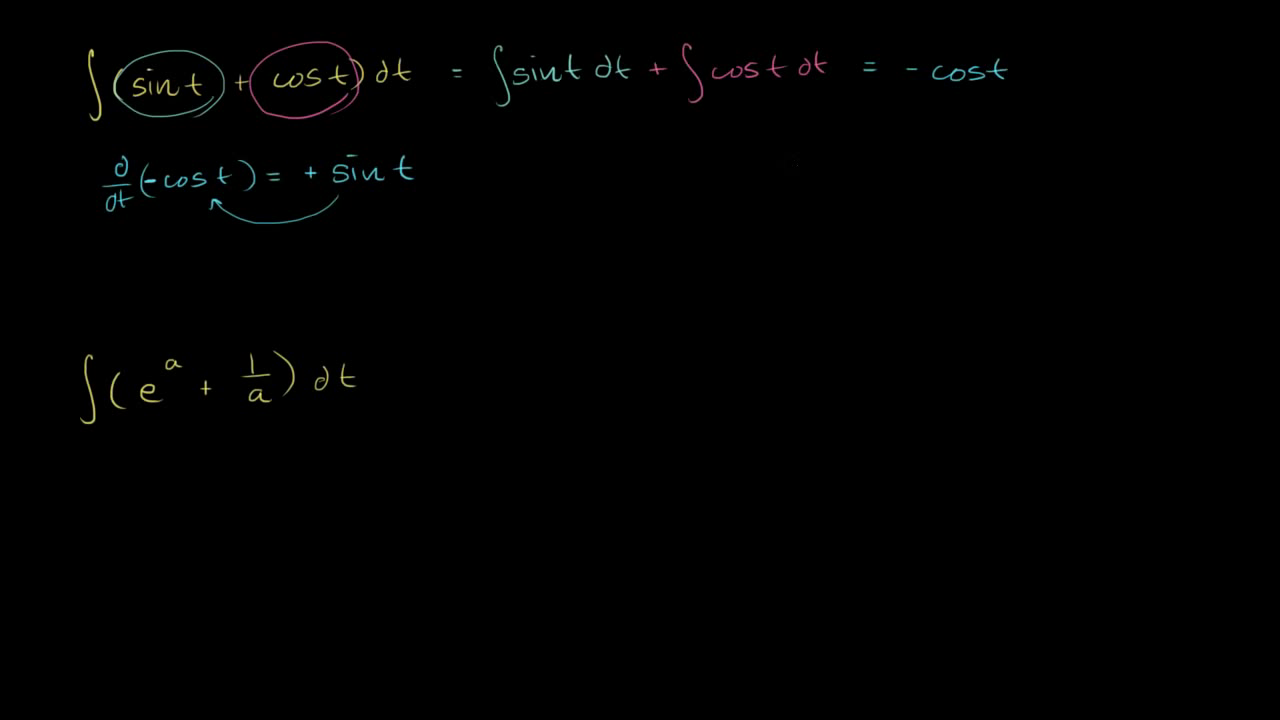 ∫(sin t + cos t) dt = ∫sin t dt + ∫cos t dt = - cos t
d/dt (-cos t) = + sin t
∫(e^a + 1/a) dt